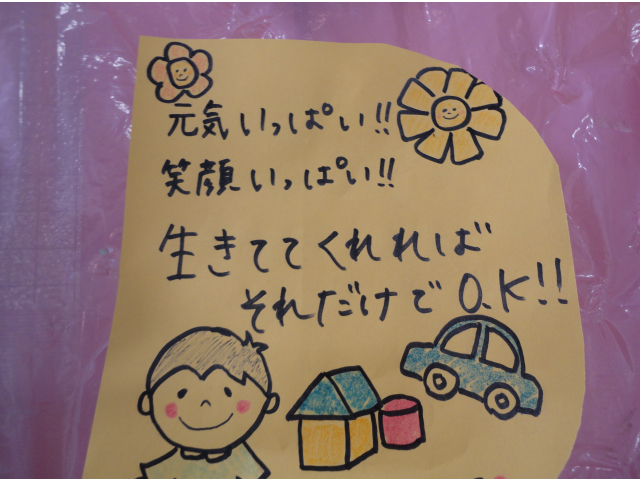 元気いっぱい!!
笑顔いっぱい!!
生きててくれれば
それだけでO.K!!